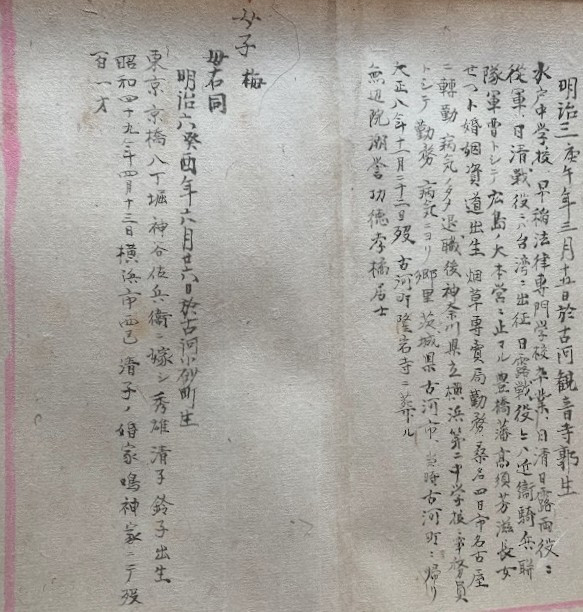 明治三庚午年三月十五日於古河観音寺郭生
水戸中学校、早稲法律専門学校卒業、日清日露両役ニ
従軍、日清戦役ニハ台湾ニ出征 日露戦役ニハ近衛騎兵聯
隊軍曹トシテ広島ノ大本営ニ止マル 豊橋藩高須芳滋長女
せつト婚姻資道出生 烟草専賣局勤務桑名四日市名古屋
ニ轉勤 病気ノタメ退職後神奈川県立横浜第二中学校事務員
トシテ勤務 病気ニヨリ郷里茨城県古河市、当時古河町ニ帰リ
大正八年十一月二十二日歿 古河町隆岩寺ニ葬ル
無辺院 誉功徳孝橘居士
女子 梅
母右同
明治六癸酉年六月廿六日於古河小砂町生
東京京橋八丁堀神谷佐兵衛ニ嫁シ秀雄清子鈴子出生
昭和四十九年四月十三日横浜市西区清子ノ婚家鳴神家ニテ歿
百一才